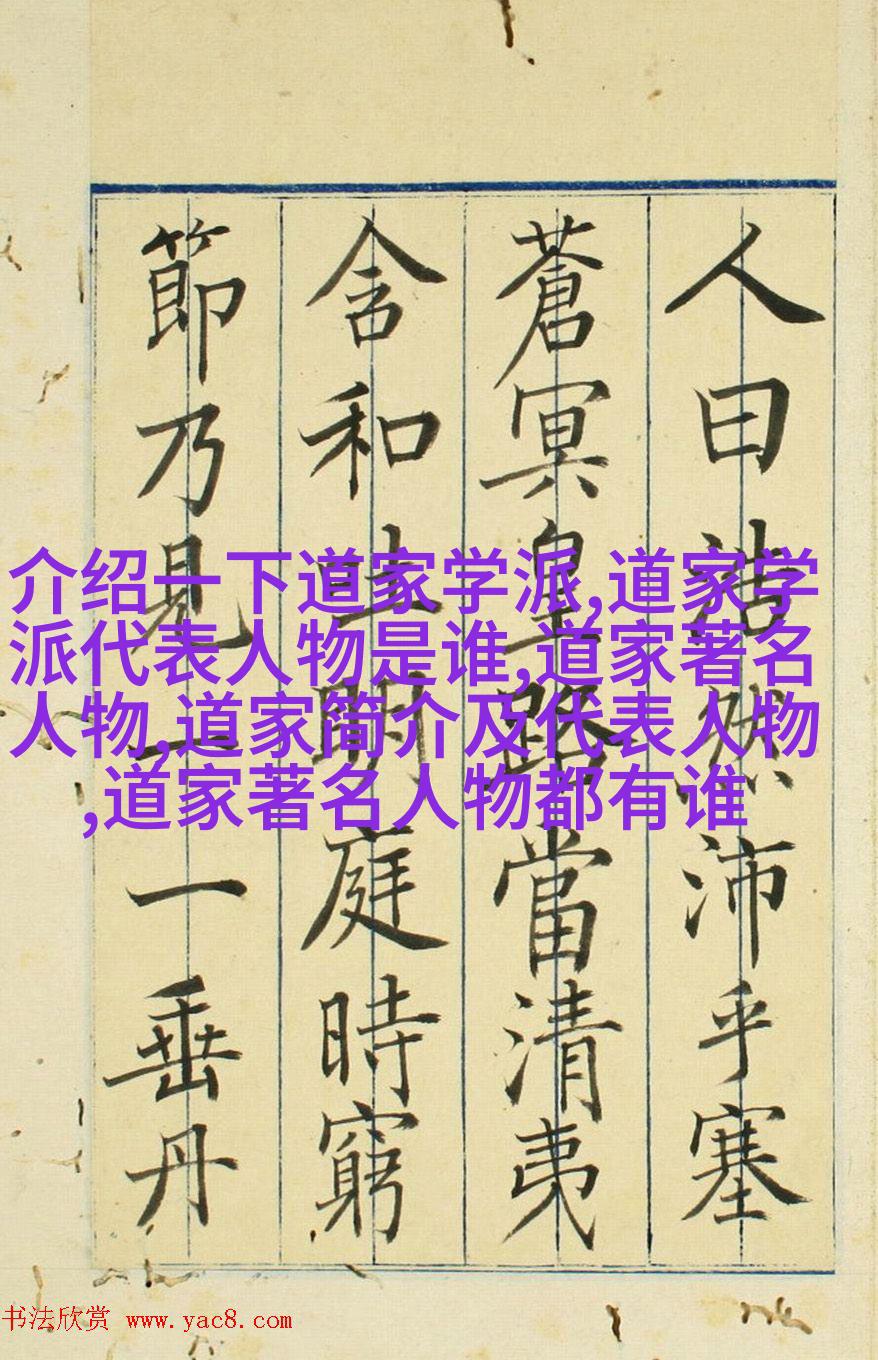 人曰浩然沛乎塞
蒼冥皇路當清夷
含和吐明庭時窮
節乃見一一垂丹
介绍一下道家学派,道家学
派代表人物是谁,道家著名
人物,道家简介及代表人物
,道家著名人物都有谁
书法欣赏 www.yac8.com